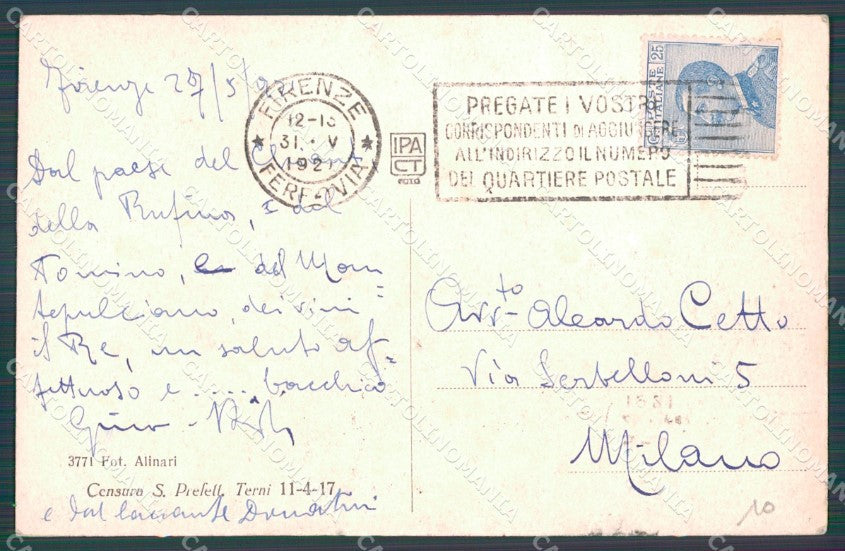 Firenze 27/5/92
FIRENZE
12-13
31 · V
192
FERROVIA
IPA
CT
FOTO
PREGATE I VOSTRI
CORRISPONDENTI DI AGGIUNGERE
ALL'INDIRIZZO IL NUMERO
DEL QUARTIERE POSTALE
25
Dal paese del
della Rufina, e dal
Pomino, del Mon=
tepulciano, dei vini
il Re, un saluto af=
fettuoso e .... bacchico
Gino
3771 Fot. Alinari
Censura S. Prefett. Terni 11-4-17
e dal Donatini
Avv.to Aleardo Cetto
Via Serbelloni 5
Milano
10
CARTOLINOMANIA